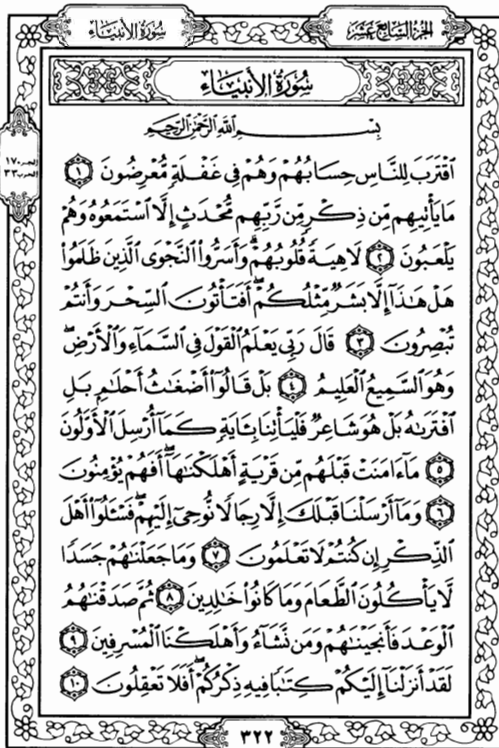 الجزء السابع عشر
سورة الأنبياء
سُورَةُ الأَنبِيَاءِ
الجزء ١٧
الحزب ٣٣
بِسْمِ اللَّهِ الرَّحْمَٰنِ الرَّحِيمِ
ٱقْتَرَبَ لِلنَّاسِ حِسَابُهُمْ وَهُمْ فِى غَفْلَةٍ مُّعْرِضُونَ ١
مَا يَأْتِيهِم مِّن ذِكْرٍ مِّن رَّبِّهِم مُّحْدَثٍ إِلَّا ٱسْتَمَعُوهُ وَهُمْ
يَلْعَبُونَ ٢ لَاهِيَةً قُلُوبُهُمْ ۗ وَأَسَرُّوا۟ ٱلنَّجْوَى ٱلَّذِينَ ظَلَمُوا۟
هَلْ هَٰذَآ إِلَّا بَشَرٌ مِّثْلُكُمْ ۖ أَفَتَأْتُونَ ٱلسِّحْرَ وَأَنتُمْ
تُبْصِرُونَ ٣ قَالَ رَبِّى يَعْلَمُ ٱلْقَوْلَ فِى ٱلسَّمَآءِ وَٱلْأَرْضِ ۖ
وَهُوَ ٱلسَّمِيعُ ٱلْعَلِيمُ ٤ بَلْ قَالُوٓا۟ أَضْغَٰثُ أَحْلَٰمٍ بَلِ
ٱفْتَرَىٰهُ بَلْ هُوَ شَاعِرٌ فَلْيَأْتِنَا بِـَٔايَةٍ كَمَآ أُرْسِلَ ٱلْأَوَّلُونَ
٥ مَآ ءَامَنَتْ قَبْلَهُم مِّن قَرْيَةٍ أَهْلَكْنَٰهَآ ۖ أَفَهُمْ يُؤْمِنُونَ
٦ وَمَآ أَرْسَلْنَا قَبْلَكَ إِلَّا رِجَالًا نُّوحِىٓ إِلَيْهِمْ ۖ فَسْـَٔلُوٓا۟ أَهْلَ
ٱلذِّكْرِ إِن كُنتُمْ لَا تَعْلَمُونَ ٧ وَمَا جَعَلْنَٰهُمْ جَسَدًا
لَّا يَأْكُلُونَ ٱلطَّعَامَ وَمَا كَانُوا۟ خَٰلِدِينَ ٨ ثُمَّ صَدَقْنَٰهُمُ
ٱلْوَعْدَ فَأَنجَيْنَٰهُمْ وَمَن نَّشَآءُ وَأَهْلَكْنَا ٱلْمُسْرِفِينَ ٩
لَقَدْ أَنزَلْنَآ إِلَيْكُمْ كِتَٰبًا فِيهِ ذِكْرُكُمْ ۖ أَفَلَا تَعْقِلُونَ ١٠
٣٢٢